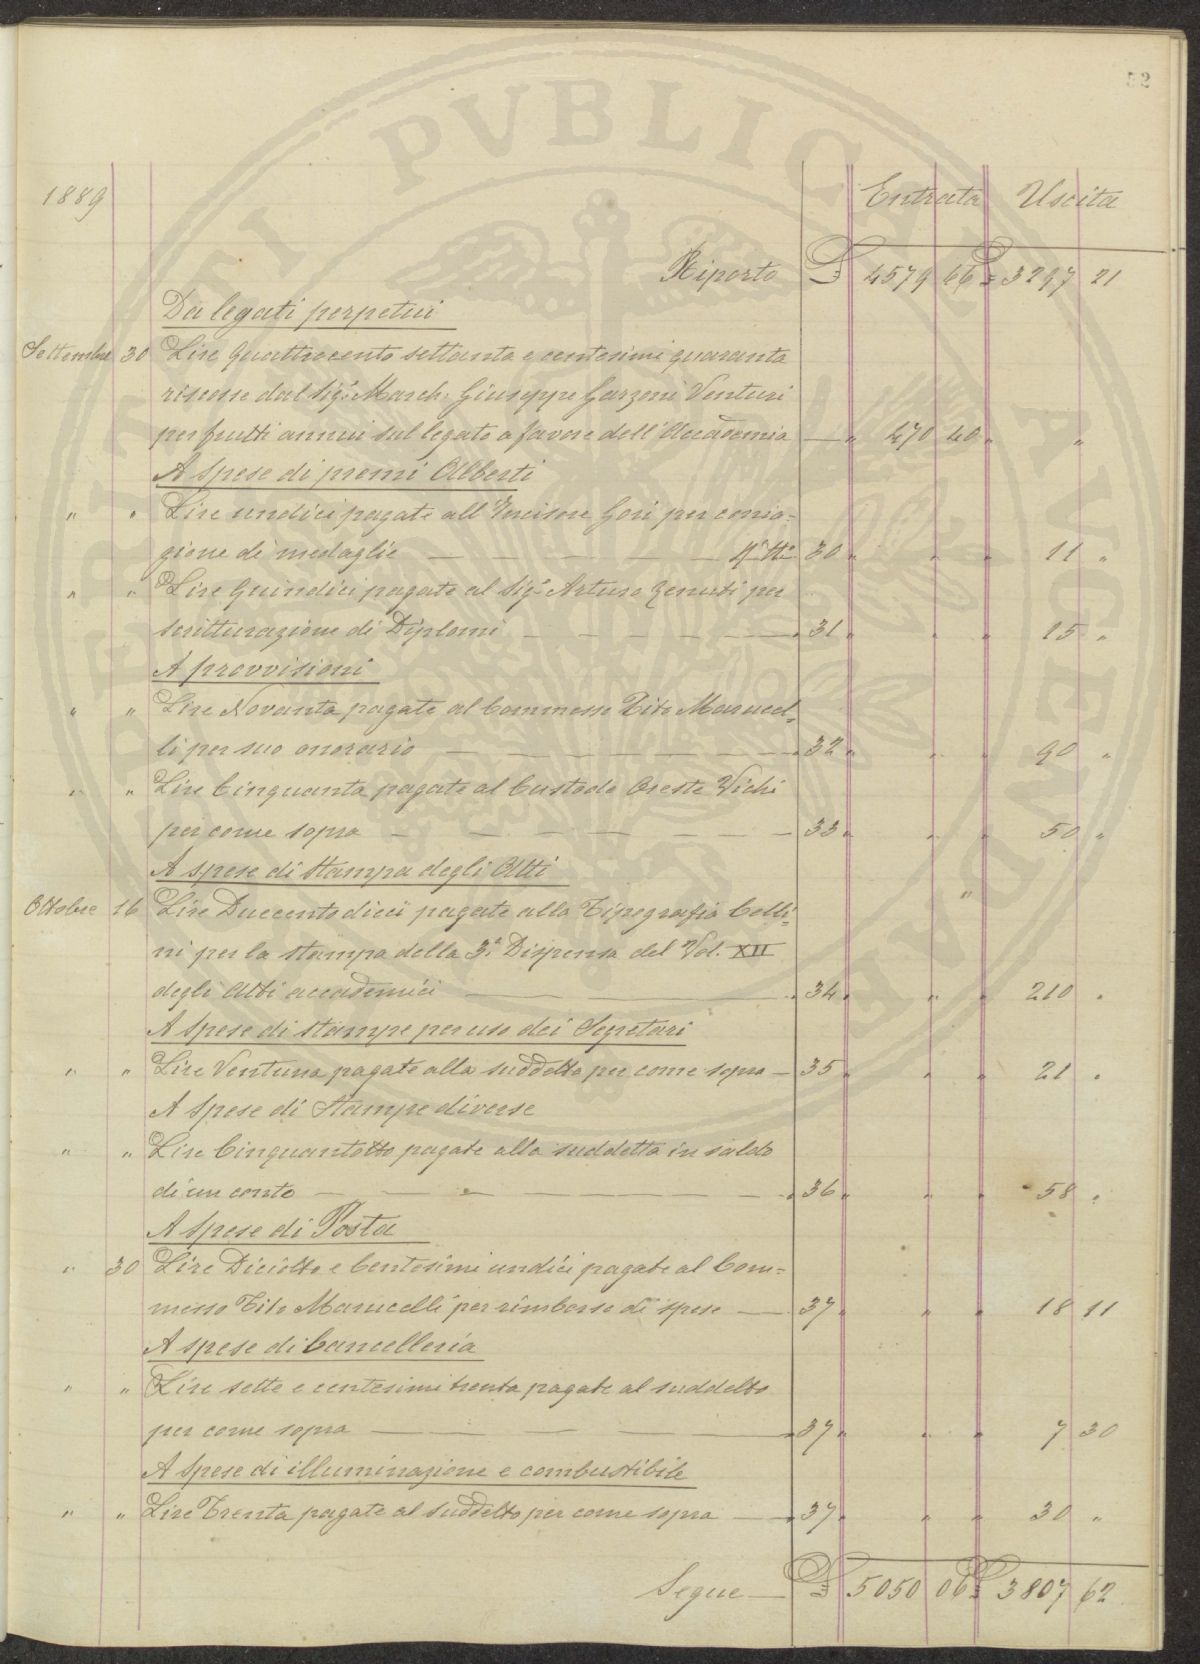 52
1889 Entrata Uscita
Riporto £ 4579 66 £ 3297 21
Da legati perpetui
Settembre 30 Lire Quattrocento settanta e centesimi quaranta
riscosse dal Sig.r March. Giuseppe Garzoni Venturi
per frutti annui sul legato a favore dell'Accademia — " 470 40 " "
A Spese di premi Alberti
" " Lire undici pagate all'Incisore Gori per conia=
zione di medaglie — — — 30 " " " 11 "
" " Lire Quindici pagate al Sig.r Arturo Zenuti per
scritturazione di Diplomi — — — 31 " " " 15 "
A provvisioni
" " Lire Novanta pagate al Commesso Tito Marucel=
li per suo onorario — — — 32 " " " 90 "
" " Lire Cinquanta pagate al Custode Oreste Vichi
per come sopra — — — 33 " " " 50 "
A spese di stampa degli Atti
Ottobre 16 Lire Duecentodieci pagate alla Tipografia Celli= "
ni per la stampa della 3.a Dispensa del Vol. XII
degli Atti accademici — 34 " " " 210 "
A spese di stampe per uso dei Segretari
" " Lire Ventuna pagate alla suddetta per come sopra — 35 " " " 21 "
A Spese di Stampe diverse
" " Lire Cinquantotto pagate alla suddetta in saldo
di un conto — — — 36 " " " 58 "
A Spese di Posta
" 30 Lire Diciotto e Centesimi undici pagate al Com=
messo Tito Marucelli per rimborso di spese — 37 " " " 18 11
A spese di Cancelleria
" " Lire sette e centesimi trenta pagate al suddetto
per come sopra — — — 37 " " " 7 30
A Spese di illuminazione e combustibile
" " Lire Trenta pagate al suddetto per come sopra — 37 " " " 30 "
Segue — £ 5050 06 £ 3807 62